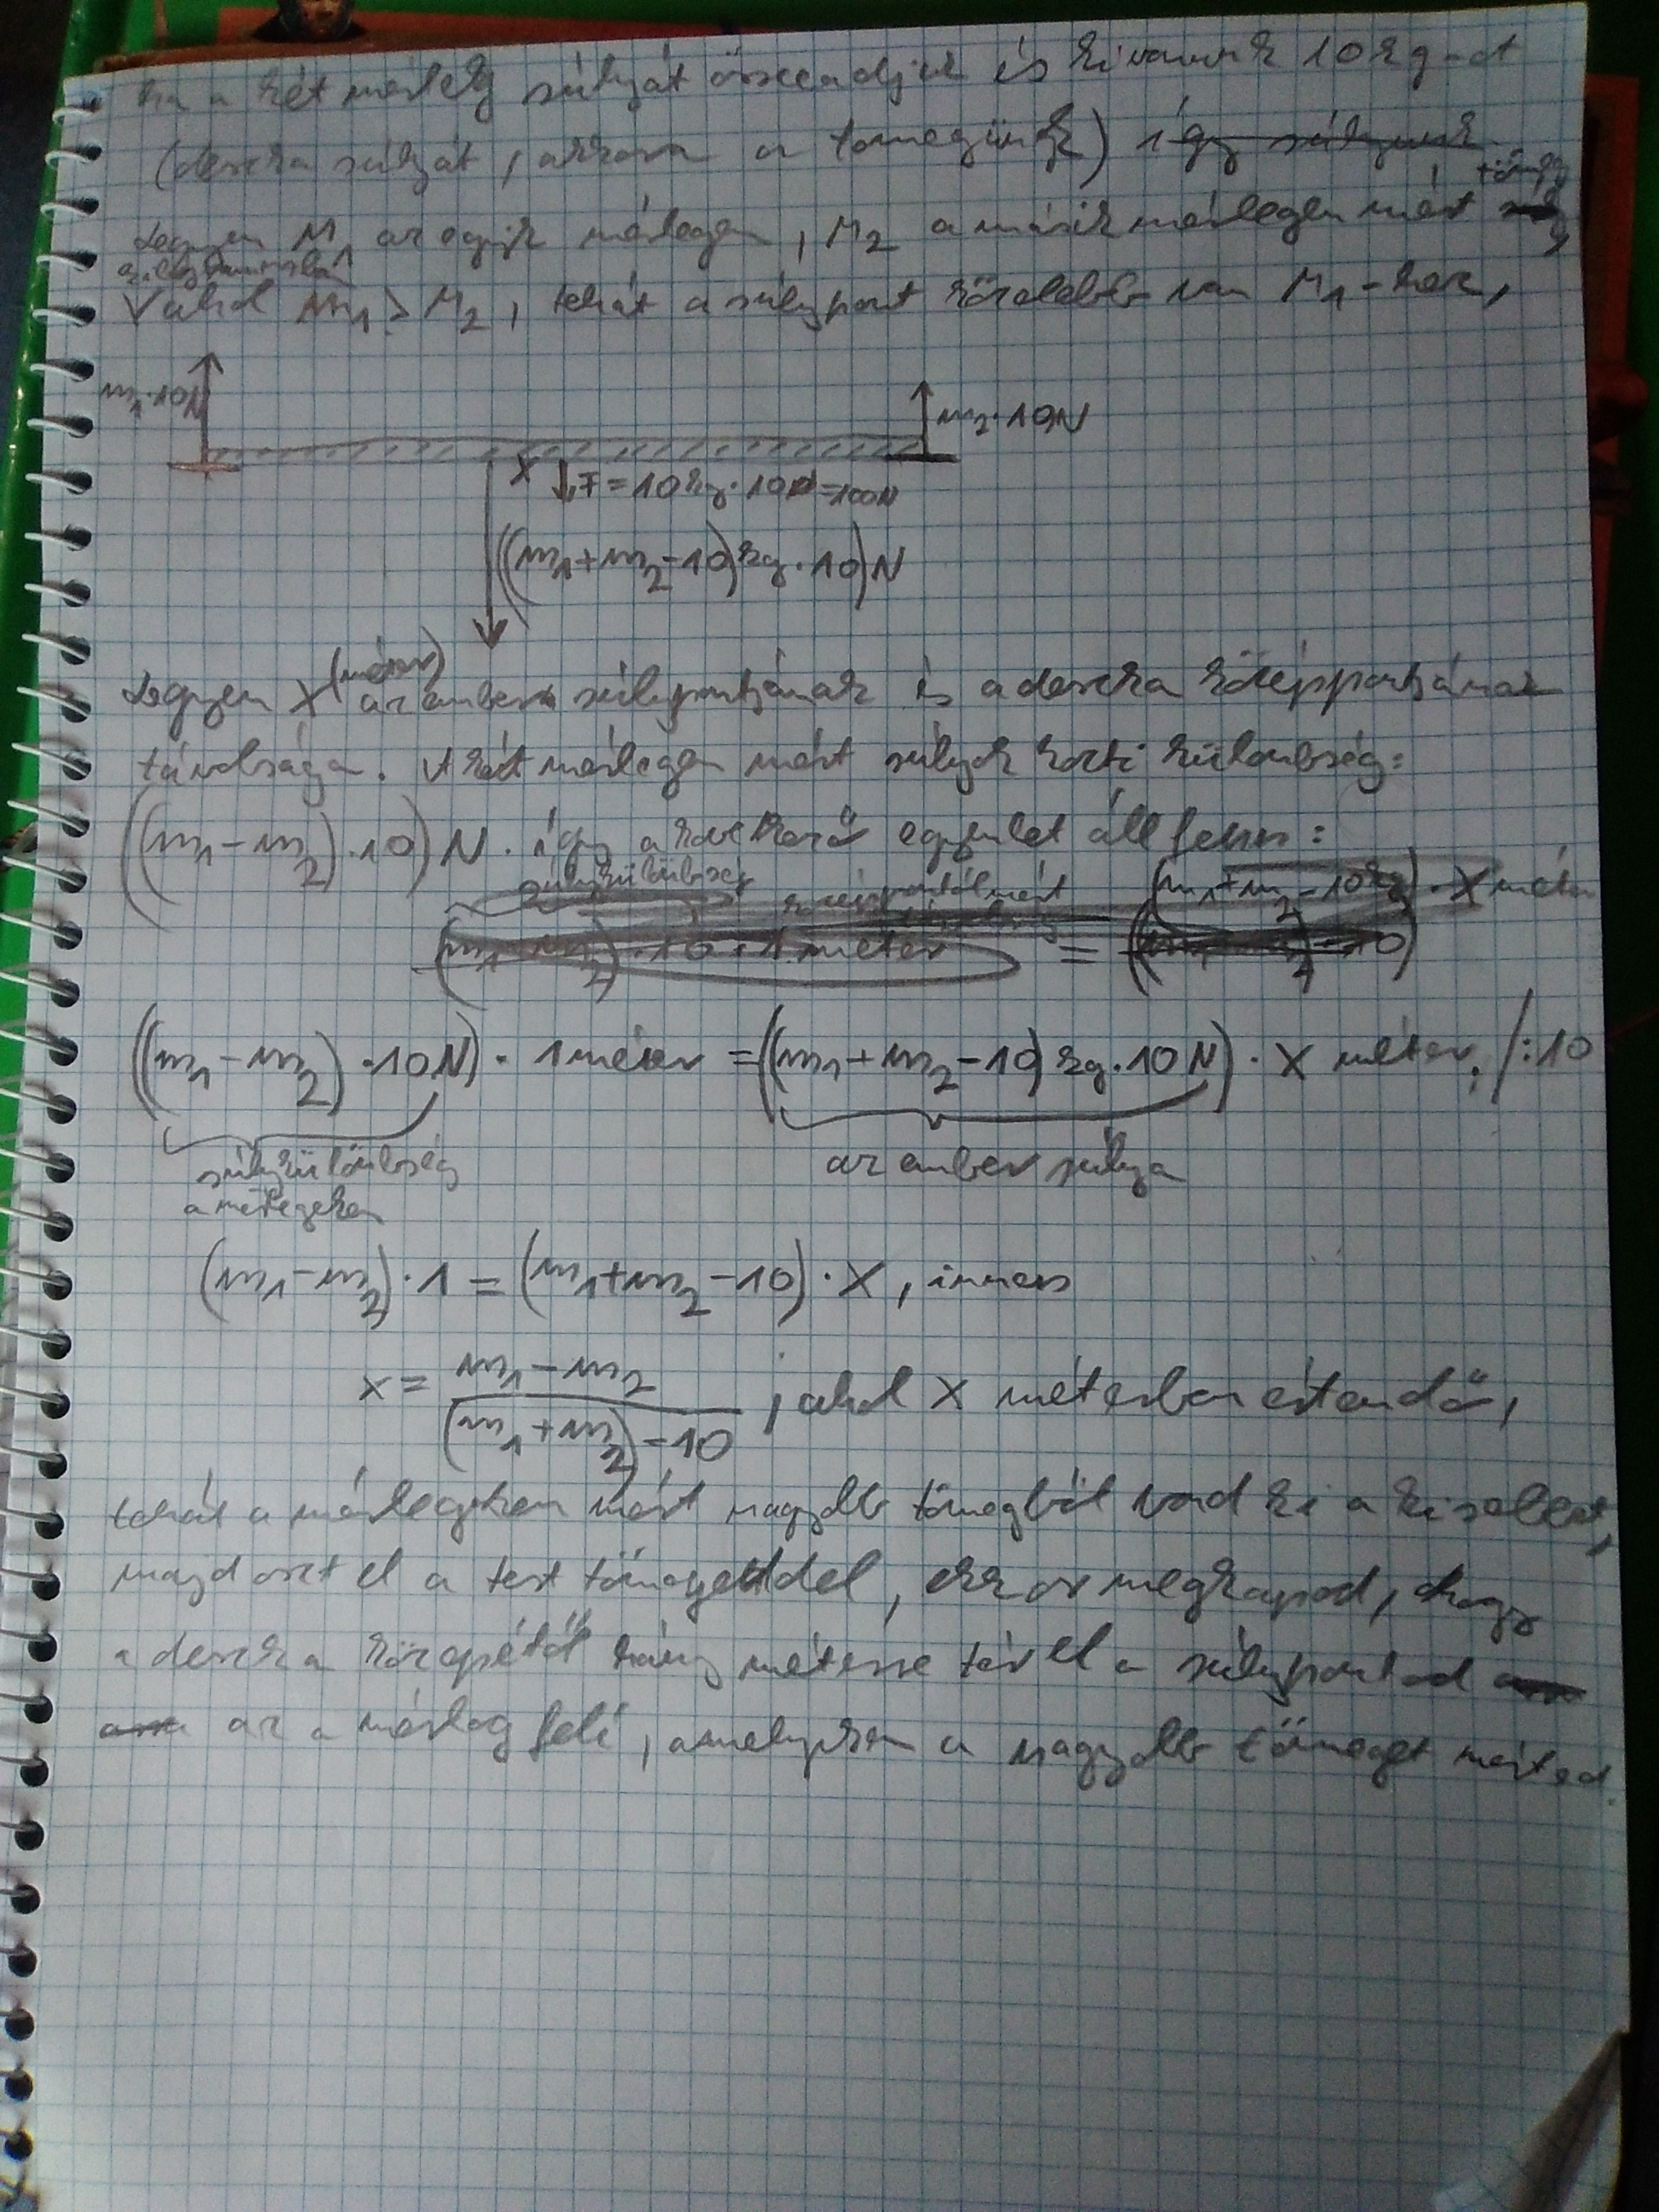 ha a két mérleg súlyát összeadjuk és kivonunk 10 kg-ot
(deszka súlyát, akkor a tömegünk) így súlyunk
tömeg
Legyen M₁ az egyik mérlegen, M₂ a másik mérlegen mért
Vahol M₁ > M₂, tehát a súlypont közelebb van M₁-hez,
m₁·10N
m₂·10N
X F=10kg·10N=100N
((m₁+m₂-10)kg·10)N
(méter)
Legyen X az ember súlypontjának és a deszka középpontjának
távolsága. A két mérlegen mért súlyok közti különbség:
((m₁-m₂)·10)N. így a következő egyenlet áll fenn:
súlykülönbség
(m₁+m₂-10kg)·X méter
(m₁-m₂)·10·1 méter =
((m₁-m₂)·10N)·1 méter = ((m₁+m₂-10)kg·10N)·X méter /:10
súlykülönbség az ember súlya
a mérlegeken
(m₁-m₂)·1=(m₁+m₂-10)·X, innen
x = (m₁-m₂)/((m₁+m₂)-10), ahol X méterben értendő,
tehát a mérlegeken mért nagyobb tömegből vond ki a kisebbet,
majd oszt el a test tömegeddel, ekkor megkapod, hogy
a deszka közepétől hány méterre tér el a súlypontod
az a mérleg felé, amelyiken a nagyobb tömeget mérted.